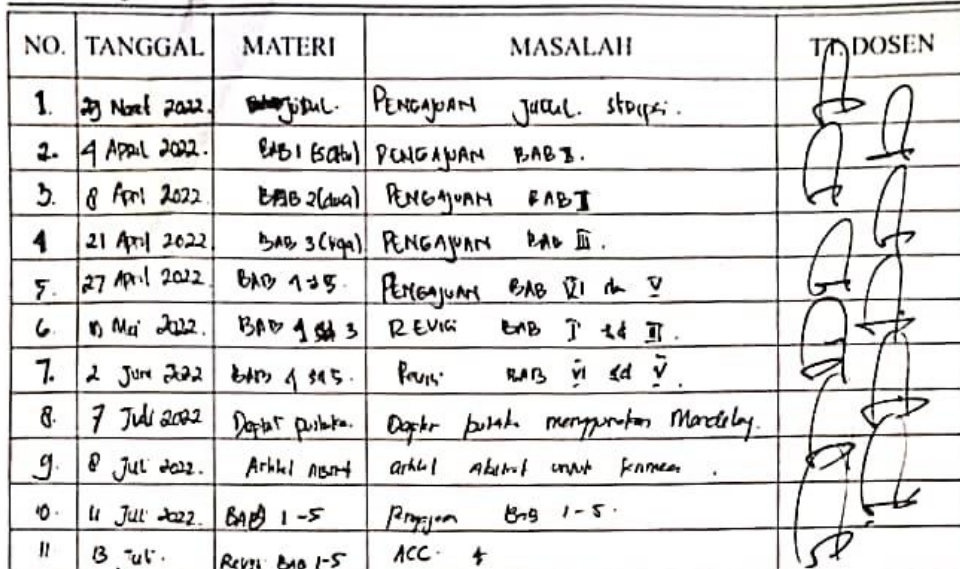 NO. TANGGAL MATERI MASALAH TT. DOSEN
1. 29 Maret 2022. Judul. PENGAJUAN Judul. skripsi.
2. 4 April 2022. BAB 1 (satu) PENGAJUAN BAB I.
3. 8 April 2022 BAB 2 (dua) PENGAJUAN BAB II
4 21 April 2022 BAB 3 (tiga) PENGAJUAN BAB III.
5. 27 April 2022 BAB 4 5. PENGAJUAN BAB VI V
6. Mei 2022. BAB 1 sd 3 REVISI BAB I sd III.
7. 2 Juni 2022 BAB 4 sd 5. Revisi BAB VI sd V.
8. 7 Juli 2022 Daftar pustaka. Daftar pustaka menggunakan Mendeley.
9. 8 Juli 2022. Artikel artikel Abstrak untuk
10. 11 Juli 2022. BAB 1-5 BAB 1-5.
11 13 Juli. Revisi BAB 1-5 ACC.